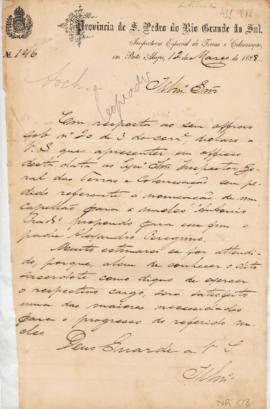 Provincia de S. Pedro do Rio Grande do Sul.
Inspectoria Especial de Terras e Colonisação,
em Porto Alegre, 12 de Março de 1888
N. 146
Arch.
Illm. Snr.
Com resposta ao seu officio
sob nº 20 de 3 do corrente
V. S. que apresentei em officio
desta data ao Inspector Ge-
ral das Terras e Colonisação seu pe-
dido referente a nomeação de um
capellão para o nucleo Antonio
Prado propondo para um fim o
padre Alexandre Pellegrini.
Muito estimarei se for attendi-
do, porque, alem de conhecer o dito
sacerdote como digno de exercer
o respectivo cargo, será satisfeita
uma das maiores necessidades
para o progresso do referido nu-
cleo
Deus Guarde a V. S.
Illm.